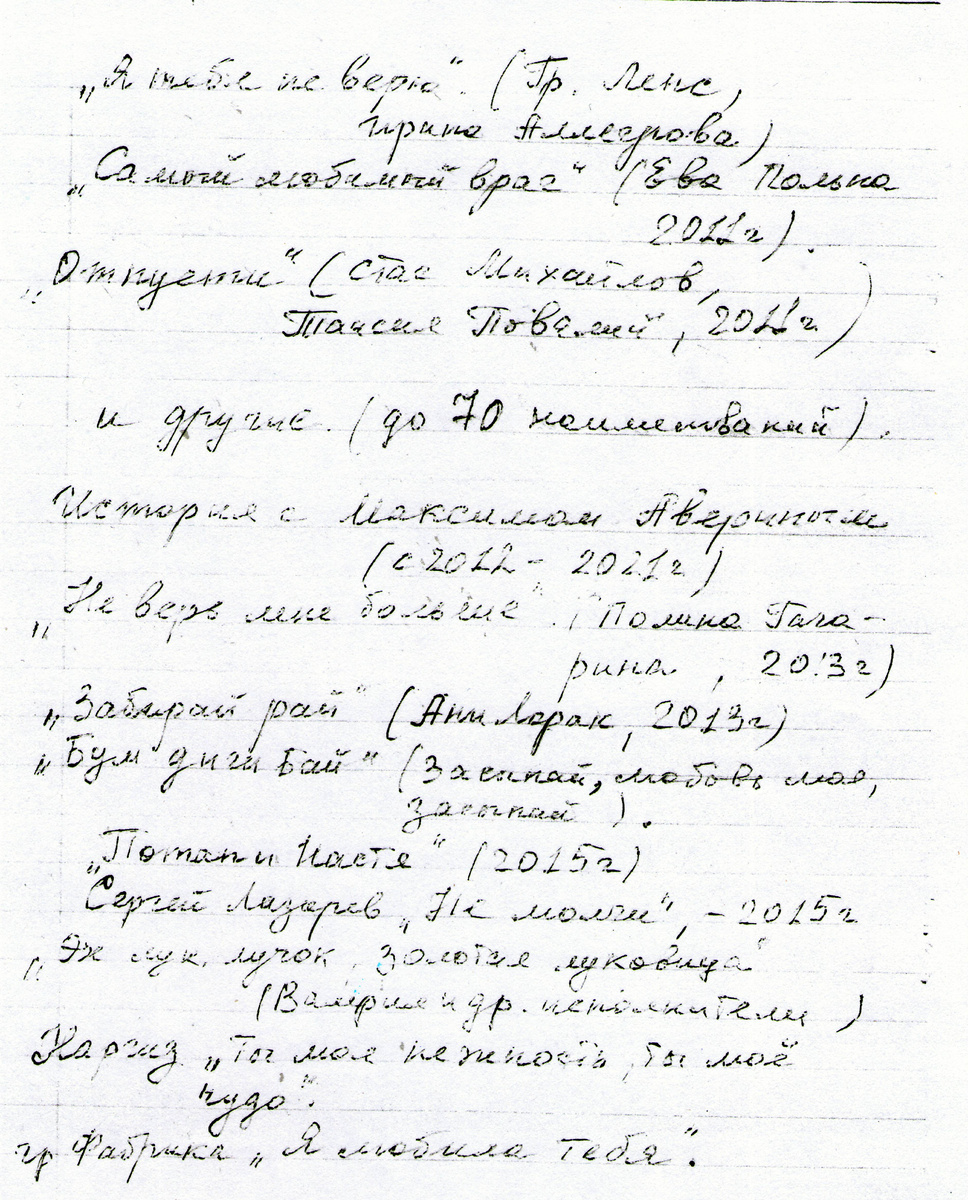 „Я тебе не верю". (Гр. Ленс,
Ирина Аллегрова)
„Самый любимый враг" (Ева Польна
2011г).
„Отпусти" (Стас Михайлов,
Таисия Повалий, 2011г.)
и другие. (до 70 наименований).
История с Максимом Авериным
(с 2012 - 2021г)
„Не верь мне больше". (Полина Гага-
рина, 2013г)
„Забирай рай" (Ани Лорак, 2013г)
„Бум диги бай" (Засыпай, любовь моя,
Засыпай ).
„Потап и Настя" (2015г)
Сергей Лазарев „Не молчи", - 2015г
„Эх лук, лучок, золотая луковица"
(Валерия и др. исполнители )
Наргиз „Ты моя нежность, ты моё
чудо".
гр Фабрика „Я любила тебя".